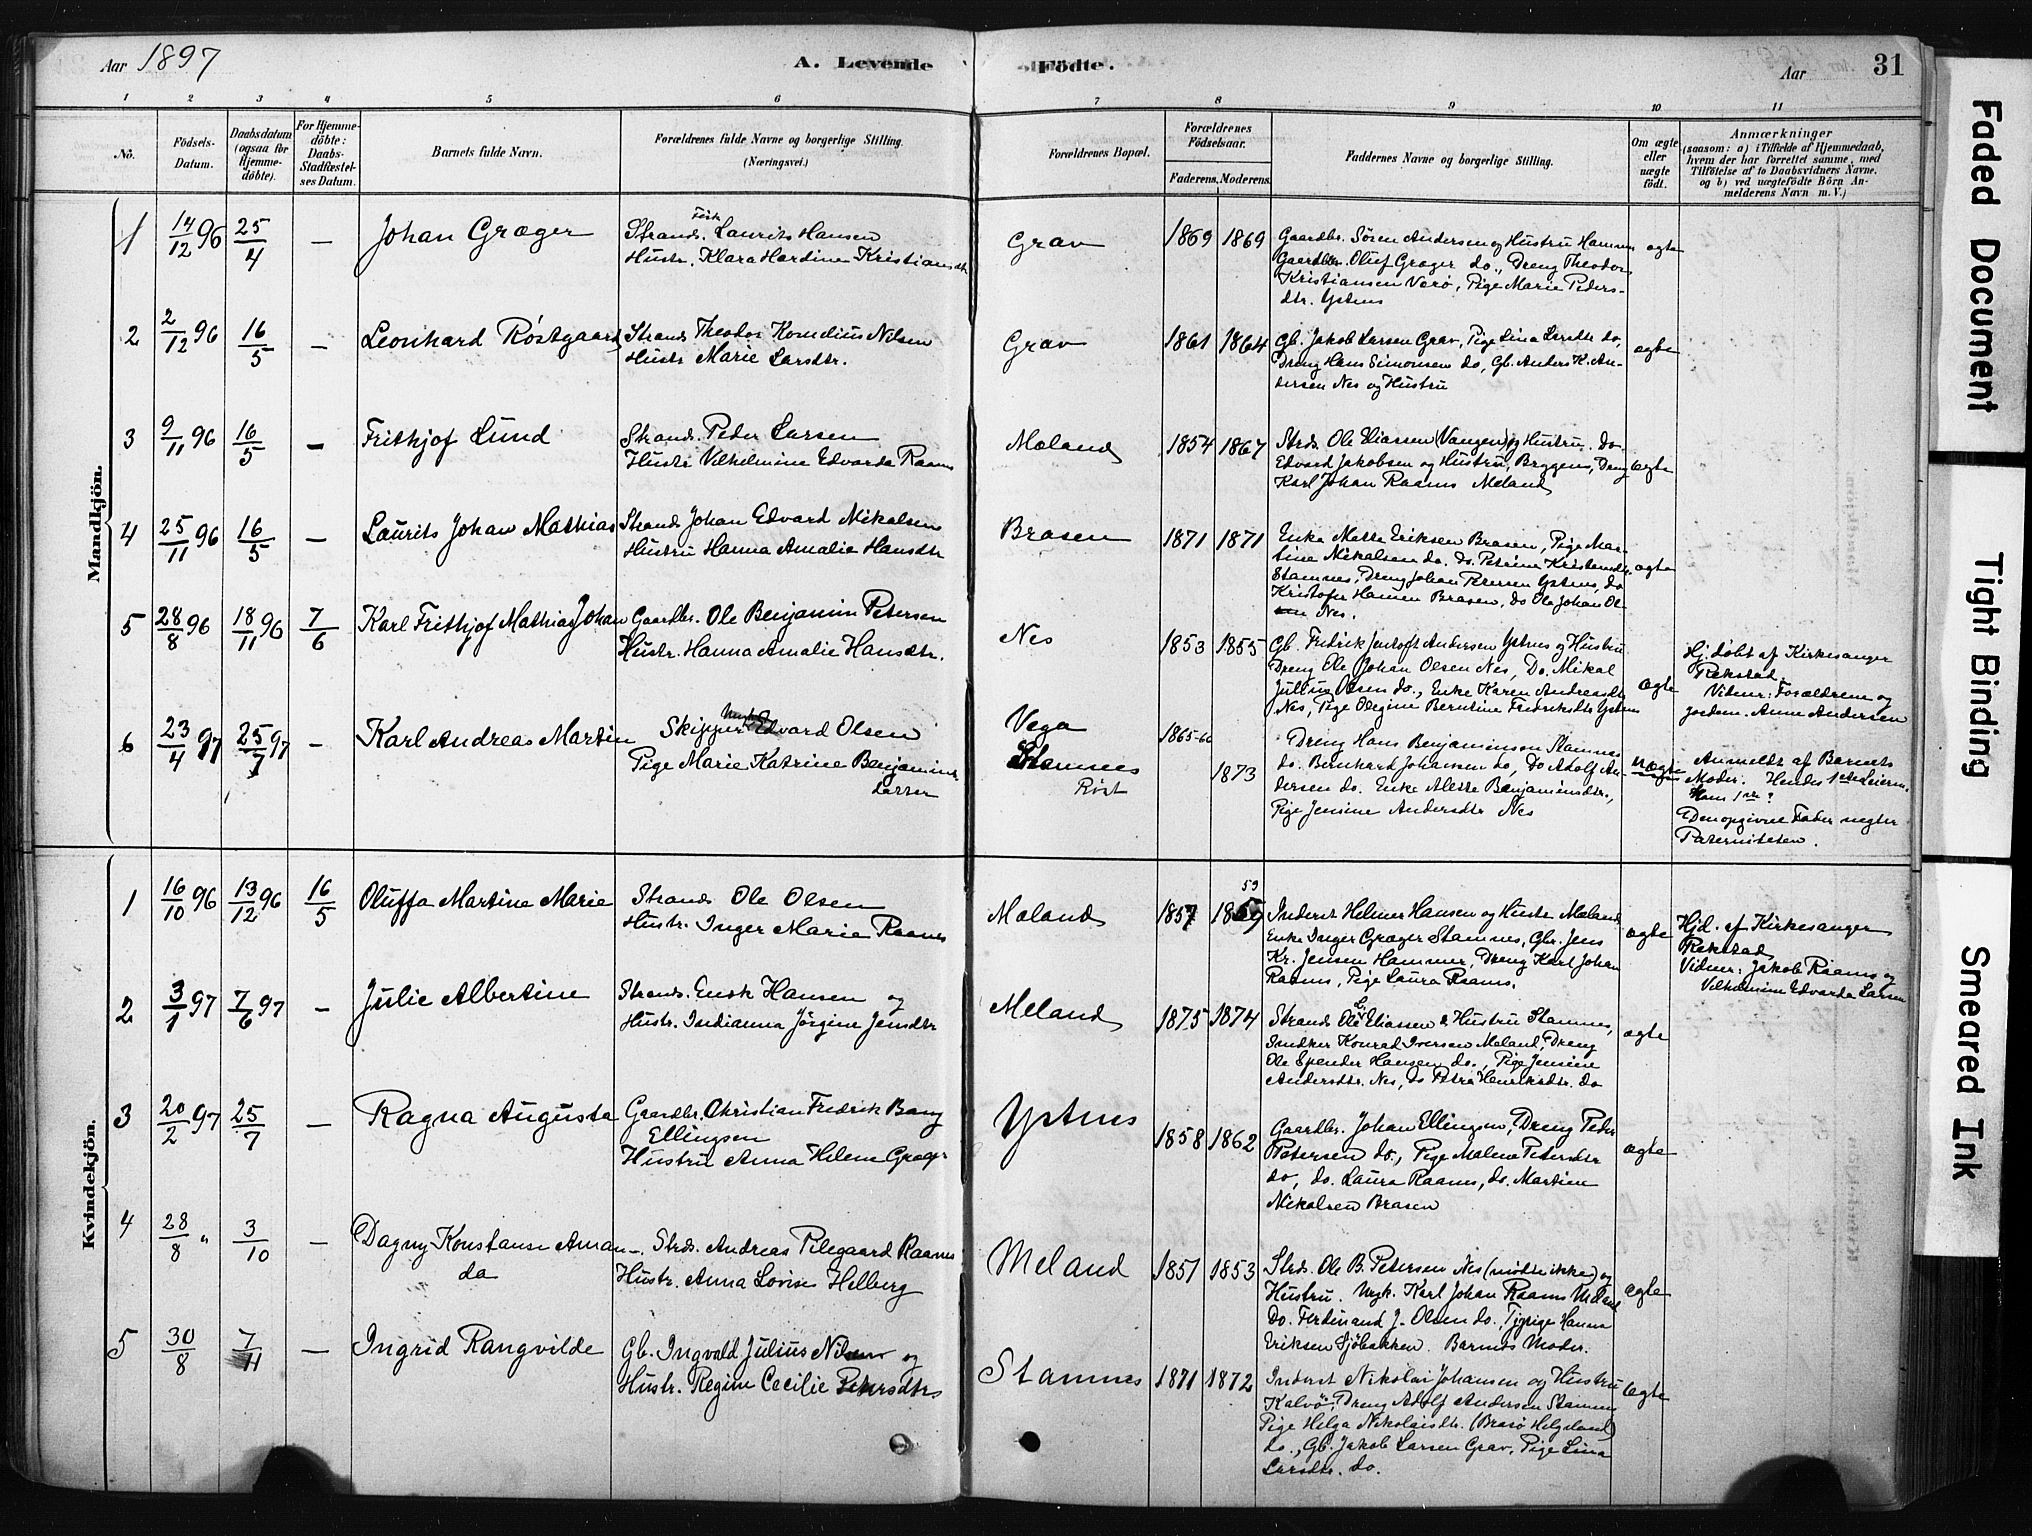 Aar 1897
A. Levende Födte.
Aar
31
1 2 3 4 5 6 7 8 9 10 11
No.
Födsels-Datum.
Daabsdatum (ogsaa for Hjemme-döbte).
For Hjemme-döbte: Daabs-Stadfæstel-ses Datum.
Barnets fulde Navn.
Forældrenes fulde Navne og borgerlige Stilling. (Næringsvei.)
Forældrenes Bopæl.
Forældrenes Födselsaar.
Faderens. Moderens.
Faddernes Navne og borgerlige Stilling.
Om ægte eller uægte födt.
Anmærkninger
(saasom: a) i Tilfælde af Hjemmedaab,
hvem der har forrettet samme, med
Tilföielse af to Daabsvidners Navne.
og b) ved uægtefödte Börn An-
melderens Navn m. V.)
Mandkjön.
1 14/12 96 25/4 — Johan Græger
Strands. Laurits Hansen
Hustr. Klara Hardine Kristiansdtr
Grav 1869 1869
Gaardbr. Sören Andersen og Hustru Hamnen
Gaardbr. Oluf Græger do., Dreng Theodor
Kristiansen Værö, Pige Marie Peders-
dtr. Ystnes
ægte
2 2/12 96 16/5 — Leonhard Röstgaard
Strands Theodor Kornelius Nilsen
Hustr Marie Larsdtr.
Grav 1861 1864
Gb. Jakob Larsen Grav, Pige Lina Larsdtr do,
Dreng Hans Simonsen do, Gb. Anders K. An-
dersen Nes og Hustru
ægte
3 9/11 96 16/5 — Frithjof Lund
Strands. Peder Larsen
Hustr Vilhelmine Edvarda Raanes
Mæland 1854 1867
Strds. Ole Eliassen (Vangen) og Hustru. Do
Edvard Jakobsen og Hustru, Bryggen, Dreng
Karl Johan Raanes Meland
ægte
4 25/11 96 16/5 — Laurits Johan Mathias
Strands Johan Edvard Nikolsen
Hustru Hanna Amalie Hansdtr
Brasen 1871 1871
Enke Mette Eriksen Brasen, Pige Mar-
tine Nikolsen do. Do. Petrine Kristensdtr.
Stamnes, Dreng Johan Petersen Ystnes, do
Kristofer Hansen Brasen, do Ole Johan Ol-
sen Nes.
ægte
5 28/8 96 18/11 96 7/6 Karl Frithjof Mathias Johan
Gaardbr. Ole Benjamin Petersen
Hustr. Hanna Amalie Hansdtr.
Nes 1853 1855
Gb. Fredrik Jentoft Andersen Ystnes og Hustru
Dreng Ole Johan Olsen Nes, Do. Mikal
Julius Olsen do., Enke Karen Andreasdtr
Nes, Pige Olegine Berntine Fredriksdtr Ystnes
ægte
Hj. döbt af Kirkesanger
Rekstad.
Vidner: Forældrene og
Jordem. Anne Andersen
6 23/4 97 25/7 97 — Karl Andreas Martin
Skipper Edvard Olsen
Pige Marie Katrine Benjamins
datter
Vega
Stamnes
Röst
1865-66 1873
Dreng Hans Benjaminsen Stamnes
do. Bernhard Johansen do, Do Adolf An-
dersen do. Enke Alette Benjaminsdtr.,
Pige Jensine Andersdtr Nes
uægte
Anmeldt af Barnets
Moder. Hendes 1ste Leierm.
Hans 1ste?
Den opgivne Fader negter
Paterniteten.
Kvindekjön.
1 16/10 96 13/12 96 16/5 Oluffa Martine Marie
Strands Ole Olsen
Hustr. Inger Marie Raanes
Mæland 1857 1859 59
Inderst Helmer Hansen og Hustr Mæland
Enke Inger Græger Stamnes, Gbr. Jens
Kr. Jensen Hammer, Dreng Karl Johan
Raanes, Pige Laura Raanes.
ægte
Hjd. af Kirkesanger
Rekstad
Vidner: Jakob Raanes og
Vilhelmine Edvarda Larsen
2 3/1 97 7/6 97 — Julie Albertine
Strands. Enok Hansen og
Hustr. Indianna Jörgine Jensdtr
Meland 1875 1874
Strands Ole Eliassen & Hustru Stamnes,
Indker Konrad Iversen Meland, Dreng
Ole Epender Hansen do., Pige Jensine
Andersdtr. Nes, do Petra Henriksdtr. do
ægte
3 20/2 97 25/7 — Ragna Augusta
Gaardbr. Christian Fredrik Bang
Ellingsen
Hustru Anna Helene Græger
Ystnes 1858 1862
Gaardbr. Johan Ellingsen, Dreng Peder
Petersen do., Pige Malene Petersdtr
do, do. Laura Raanes, do. Martine
Nikolsen Brasen
ægte
4 28/8 " 3/10 — Dagny Konstanse Aman-
da
Strds. Andreas Pilegaard Raanes
Hustr. Anna Lovise Helberg
Meland 1851 1853
Strds. Ole B. Petersen Nes (mödte ikke) og
Hustru. Ungk. Karl Johan Raanes Meland
Do. Ferdinand J. Olsen do., Tjpige Hanna
Eriksen Sjöbakken. Barnets Moder.
ægte
5 30/8 7/11 — Ingrid Rangvilde
Gb. Ingvald Julius Nilsen og
Hustr. Regine Cecilie Petersdtr
Stamnes 1871 1872
Inderst Nikolai Johansen og Hustru
Kalvö, Dreng Adolf Andersen Stamnes
Pige Helga Nikolaisdtr. (Brasö Helgeland)
do., Gb. Jakob Larsen Grav, Pige Lina
Larsdtr. do.
ægte
Faded Document
Tight Binding
Smeared Ink